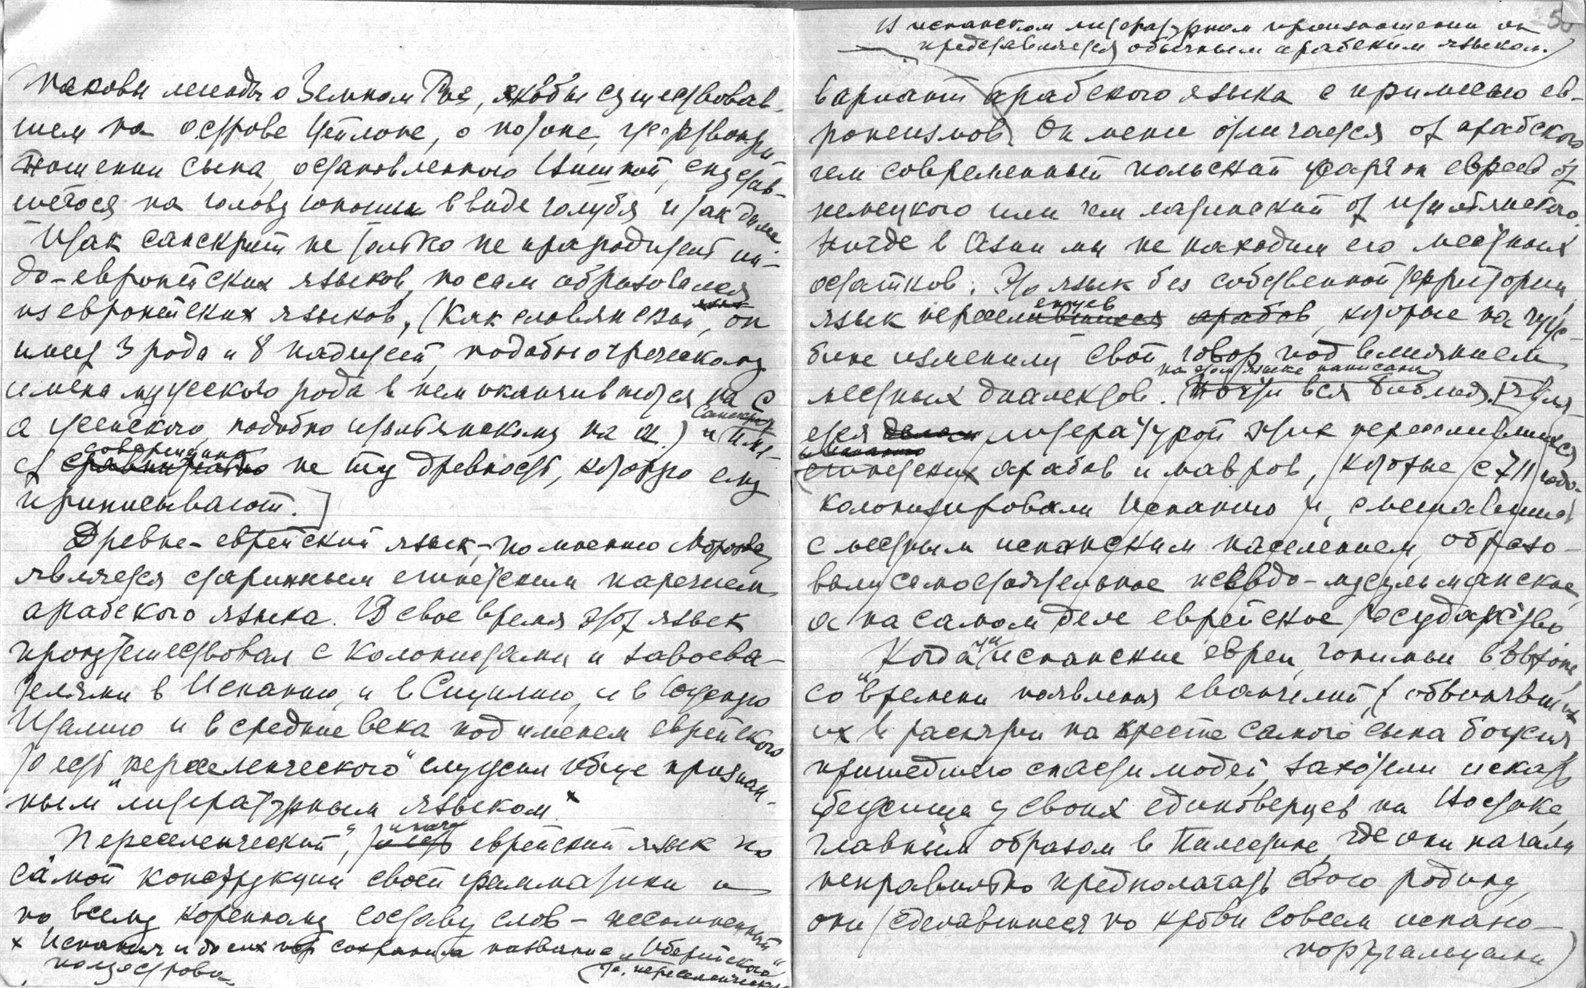 таковы легенды о Земном Рае, якобы существовав-
шем на острове Цейлоне, о потопе,
ношении сына, остановленного Вишной,
шегося на голову юноши в виде голубя и так далее
Итак санскрит не только не прародитель ин-
до-европейских языков, но сам образовался
из европейских языков, (Как славянский, он
имеет 3 рода и 8 падежей, подобно греческому
имена мужского рода в нем оканчиваются на с
а женского подобно итальянскому на а.) и санскрит име-
ет совершенно не ту древность, которую ему
приписывают.]
Древне-еврейский язык, по мнению Морозова,
является старинным египетским наречием
арабского языка. В свое время этот язык
пропутешествовал с колонистами и завоева-
телями в Испанию, и в Сицилию, и в Южную
Италию и в средние века под именем еврейского
то есть "переселенческого" служил обще признан-
ным "литературным языком"х
"Переселенческий", иначе еврейский язык по
самой конструкции своей грамматики и
по всему коренному составу слов – несомненный
х Испания и до сих пор сохранила название "Иберийского"
полуострова (т.е. переселенческого
5
В испанском литературном произношении он
представляется обычным арабским языком.)
вариант арабского языка с примесью ев-
ропеизмов. Он менее отличается от арабского
чем современный польский жаргон евреев от
немецкого или чем латинский от итальянского.
Нигде в Азии мы не находим его местных
остатков. Это язык без собственной территории,
язык переселенцев арабов, которые на чуж-
бине изменили свой говор под влиянием
местных диалектов. На этом языке написана почти вся библия. Явля-
ется литературой этих переселившихся
египетских арабов и мавров, которые с 711 года
колонизировали Испанию и, смешавшись
с местным испанским населением, образо-
вали самостоятельное псевдо-мусульманское,
а на самом деле еврейское государство
Когда эти испанские евреи, гонимые в Европе
со времени появления евангелий, (обвинявших
их в распятии на кресте самого сына божия,
пришедшего спасти людей, захотели искать
убежища у своих единоверцев на Востоке,
главным образом в Палестине, где они начали
неправильно предполагать свою родину,
они (сделавшиеся по крови совсем испано-
португальцами)